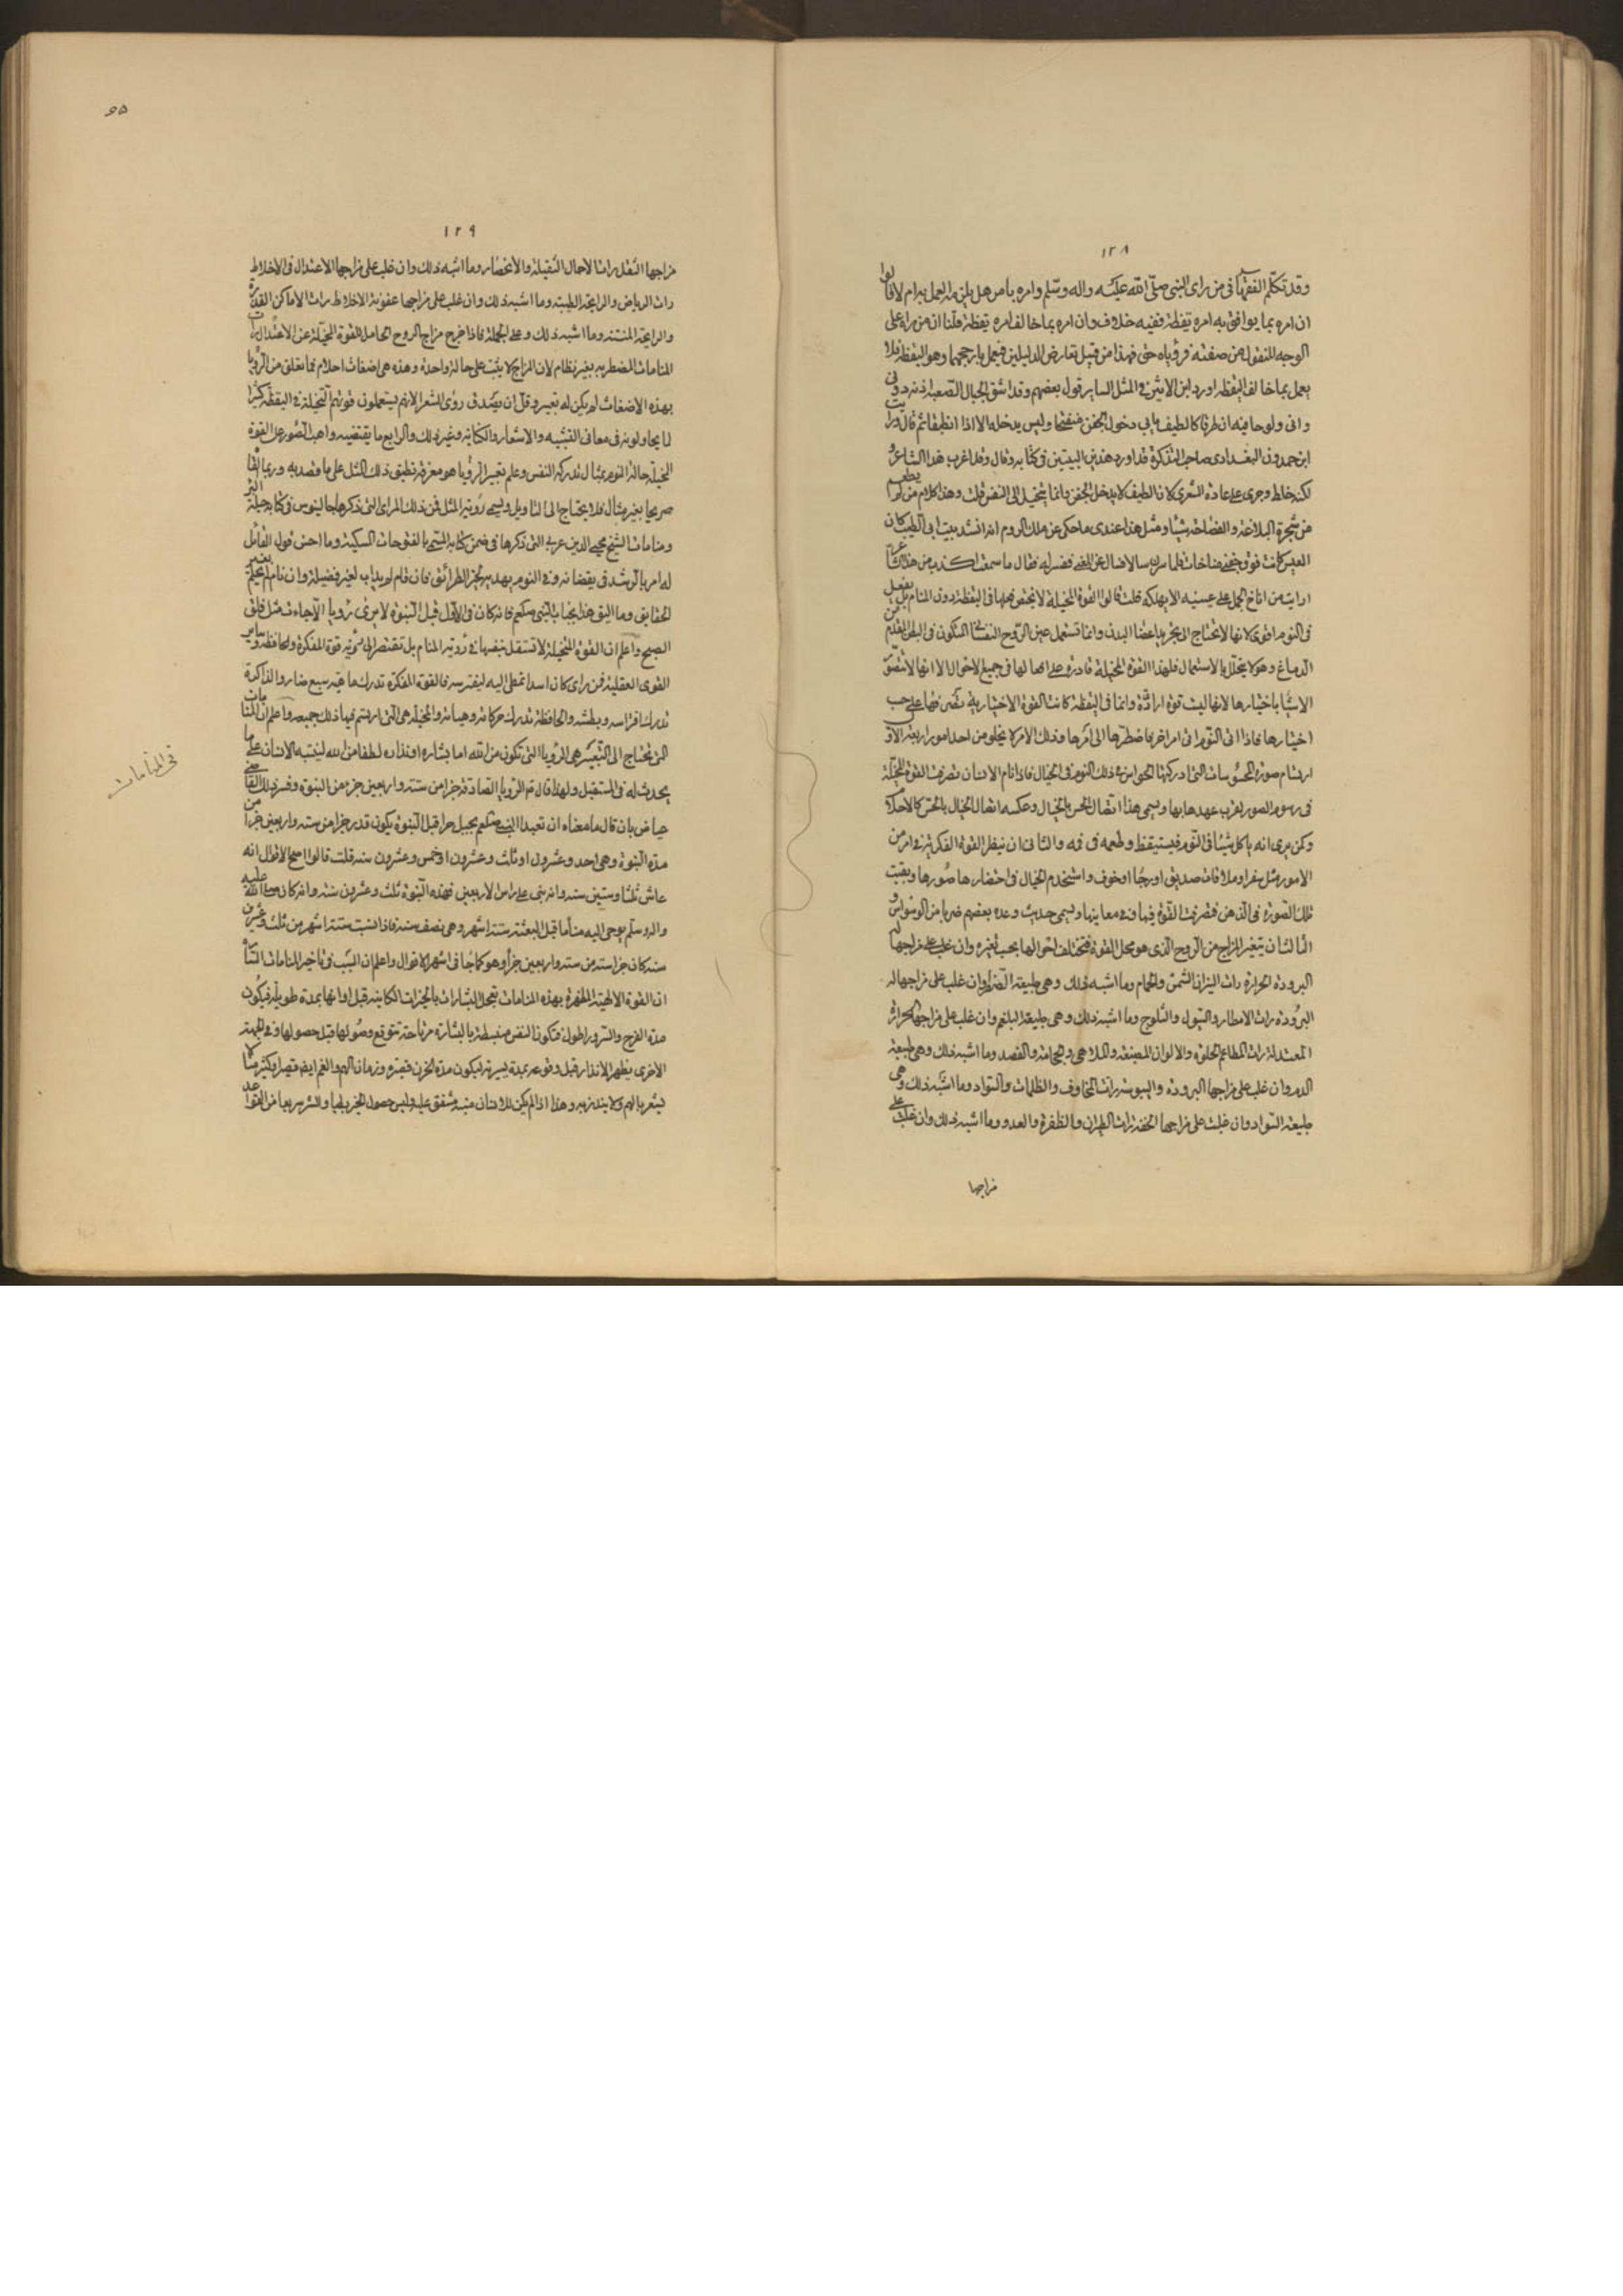 ١٢٨
وقد تكلم الفقهآ فى من راى النبى صلى الله عليه واله وسلم وامره بامر هل يلزمه العمل به ام لا قالوا
ان امره بما يوافق به امره يقظة ففيه خلاف وان امره بما خالف امره يقظة قلنا ان من راه على
الوجه المنقول من صفته فرؤياه حق فهذا من قبيل تعارض الدليلين فيعمل بارجحهما وهو اليقظه فلا
يعمل بما خالف اليقظه اورد ابن الاثير فى المثل الساير قول بعضهم وقد اشق الجبال الصعبه
وانى ولوجا فيه ان طرقا كالطيف يابى دخول الجفن منفتحا وليس يدخله الا اذا انطبقا ثم قال ورايت
ابن حمدون البغدادى صاحب التذكرة قد اورد هذين البيتين فى كتابه وقال وقد اغرب هذا الشاعر و
لكنه خلط وجرى على عادة الشعرى لان الطيف لا يدخل الجفن وانما يتخيل الى النفس قلت وهذا كلام من لم يطعم
من شجرة البلاغة والفصاحة شيئا ومثل هذا عندى ما حكى عن ملك الروم انه انشد بيت ابى الطيب كان
العيس كانت فوق جفنى مناخات فلما سرن سالا فسال عن المعنى ففسر له فقال ما سمعت اكذب من هذا الشاعر
ارايت من اناخ الجمل على عينيه الا يهلكه قلت قالوا القوة المخيلة لا يخفى فعلها فى اليقظة دون المنام بل يفعل
فى النوم اقوى لانها لا تحتاج الى تحريك اعضا البدن وانما تستعمل عين الروح النفسانى المتكون فى البطن المقدم من
الدماغ وهو لا يتحلل بالاستعمال فلهذا القوة المخيلة قادره على افعالها فى جميع الاحوال الا انها لا تتصور
الاشيا باختيارها لانها ليست قوة ارادة وانما فى اليقظة كانت القوة الاختيارية تصرفها على حسب
اختيارها فاذا فى النوم اى امر اخر بما ضطرها الى امرها وذلك الامر لا يخلو من احد امور اربعه الاول
ارتسام صورة المحسوسات التى ادركتها الحواس فى ذلك اليوم فى الخيال فاذا نام الانسان تصرفت القوة المخيلة
فى رسوم الصور لقرب عهدها بها ويسمى هذا اتصال الحس بالخيال وعكسه اتصال الخيال بالحس كالاحتلام
وكمن يرى انه ياكل شيئا فى النوم فيستيقظ وطعمه فى فمه والثانى ان نيظر القوة الفكرية فى امر من
الامور مثل سفر او ملاقات صديق او رجا او خوف واستخدم الخيال فى احضار صورها وبقيت
تلك الصورة فى الذهن فتصرفت القوة فيها فى معاينها ويسمى حديث وعده بعضهم ضربا من الوسواس و
الثالث ان يتغير المزاج من الروح الذى هو محل القوة فتختلف احوالها بحسب تغيره وان غلب على مزاجها
البرودة الحرارة رات النيران الشمس والحمام وما اشبه ذلك وهى طبيعة الصفرا وان غلب على مزاجها
البرودة رات الامطار والسيول والثلوج وما اشبه ذلك وهى طبيعة البلغم وان غلب على مزاجها الحرارة
المعتدلة رات المطاعم الحلوة والالوان المصبغة والملاهى والحجامة والفصد وما اشبه ذلك وهى طبيعة
الدم وان غلب على مزاجها البرودة واليبوسة رات المخاوف والظلمات والسواد وما اشبه ذلك وهى
طبيعة السواد وان غلبت على مزاجها الخفة رات الطيران والطفرة والعدو وما اشبه ذلك وان غلبت على
مزاجها
٩٥
١٢٩
مزاجها الثقل رات الاحمال الثقيلة والانحصار وما اشبه ذلك وان غلب على مزاجها الاعتدال فى الاخلاط
رات الرياض والرايحة الطيبة وما اشبه ذلك وان غلب على مزاجها عفونة الاخلاط رات الاماكن القذرة
والرايحة المنتنة وما اشبه ذلك وعلى الجملة فاذا خرج مزاج الروح الحامل للقوة المخيلة عن الاعتدال رات
المنامات المضطربه بغير نظام لان المزاج لا يثبت على حالة واحدة وهذه هى اضغاث احلام فما تعلق من الرؤيا
بهذه الاضغاث لم يكن له تعبير وقل ان يصدق رؤى الشعرا لانهم يستعملون قوتهم المتخيلة فى اليقظة كثيرا
لما يحاولونه فى معانى التشبيه والاستعار والكنايه وغير ذلك والرابع ما يقتضيه واهب الصور على القوة
المخيلة حالة النوم بمثال تدركه النفس وعلم تعبير الرؤيا هو معرفة تطبيق ذلك المثل على ما قصد به وربما القا
صريحا بغير مثال فلا يحتاج الى التاويل ويسمى رؤية المثل فمن ذلك المراى التى ذكرها جالينوس فى كتابه حيلة البر
ومنامات الشيخ محيى الدين عربى التى ذكرها فى ضمن كتابه المسمى بالفتوحات المكية وما احسن قول القائل
له امر بالرشد فى يقضانه وفى النوم يهديه لخير الطرائق فان قام لم يداب لغير فضيلة وان نام لم يحلم بغير
الحقايق وما اليق هذا بجناب النبى صلعم فانه كان فى الاول قبل النبوة لا يرى رؤيا الا جاءت مثل فلق
الصبح واعلم ان القوة المتخيلة لا تستقل بنفسها فى رؤية المنام بل تفتقر الى رؤية قوة المفكرة والحافظة وساير
القوى العقلية فمن راى كان اسدا تمطى اليه ليفترسه فالقوة المفكرة تدرك ماهيه سبع ضار والذاكرة
تدرك افتراسه وبطشه والحافظة تدرك حركاته وهيأته والمخيله هى التى ارتسم فيها ذلك جميعه واعلم ان المنامات
التى تحتاج الى التعبير هى الرؤيا التى تكون من الله اما بشاره او انذاره لطفا من الله لينتبه الانسان على ما
يحدث له فى المستقبل ولهذا قال م الرؤيا الصادقة جزا من ستة واربعين جزء من النبوة وفسر ذلك القاضى
عياض بان قال ما معناه ان تعبد النبى صلعم بجبل حرا قبل النبوة يكون قدر جزا من سته واربعين جزأ من
مدة النبوة وهى احد وعشرون او ثلث وعشرون او خمس وعشرون سنه قلت قالوا اصح الاقوال انه
عاش ثلثا وستين سنه وانه نبى على راس الاربعين فهذه النبوة ثلث وعشرين سنة وانه كان صلى الله عليه
واله وسلم يوحى اليه مناما قبل البعثه ستة اشهر وهى نصف سنة فاذا نسبت ستة اشهر من ثلث وعشرين
سنه كان جزا سنه من سته واربعين جزأ وهو كما جا فى اشهر الاقوال واعلم ان السبب فى تاخير المنامات السارة
ان القوة الالهية المظهرة بهذه المنامات تعجل البشارات بالخيرات الكاينه قبل اوانها بمدة طويلة فيكون
مدة الفرح والسرور اطول فتكون النفس منبسطة بالبشارة مرتاحة تتوقع وصولها قبل حصولها وفى الجهة
الاخرى يظهر الانذار قبل وقوعه بمدة يسيره ليكون مدة الحزن قصيره وزمان الهم والغم ايضا قصيرا وكثيرا ما
يشعر بالهم ولا ينذر به وهذا اذا لم يكن للانسان منبه وشفق عليه وليس حصول الخير بطيا والشر سريعا من القواعد
فى المنامات